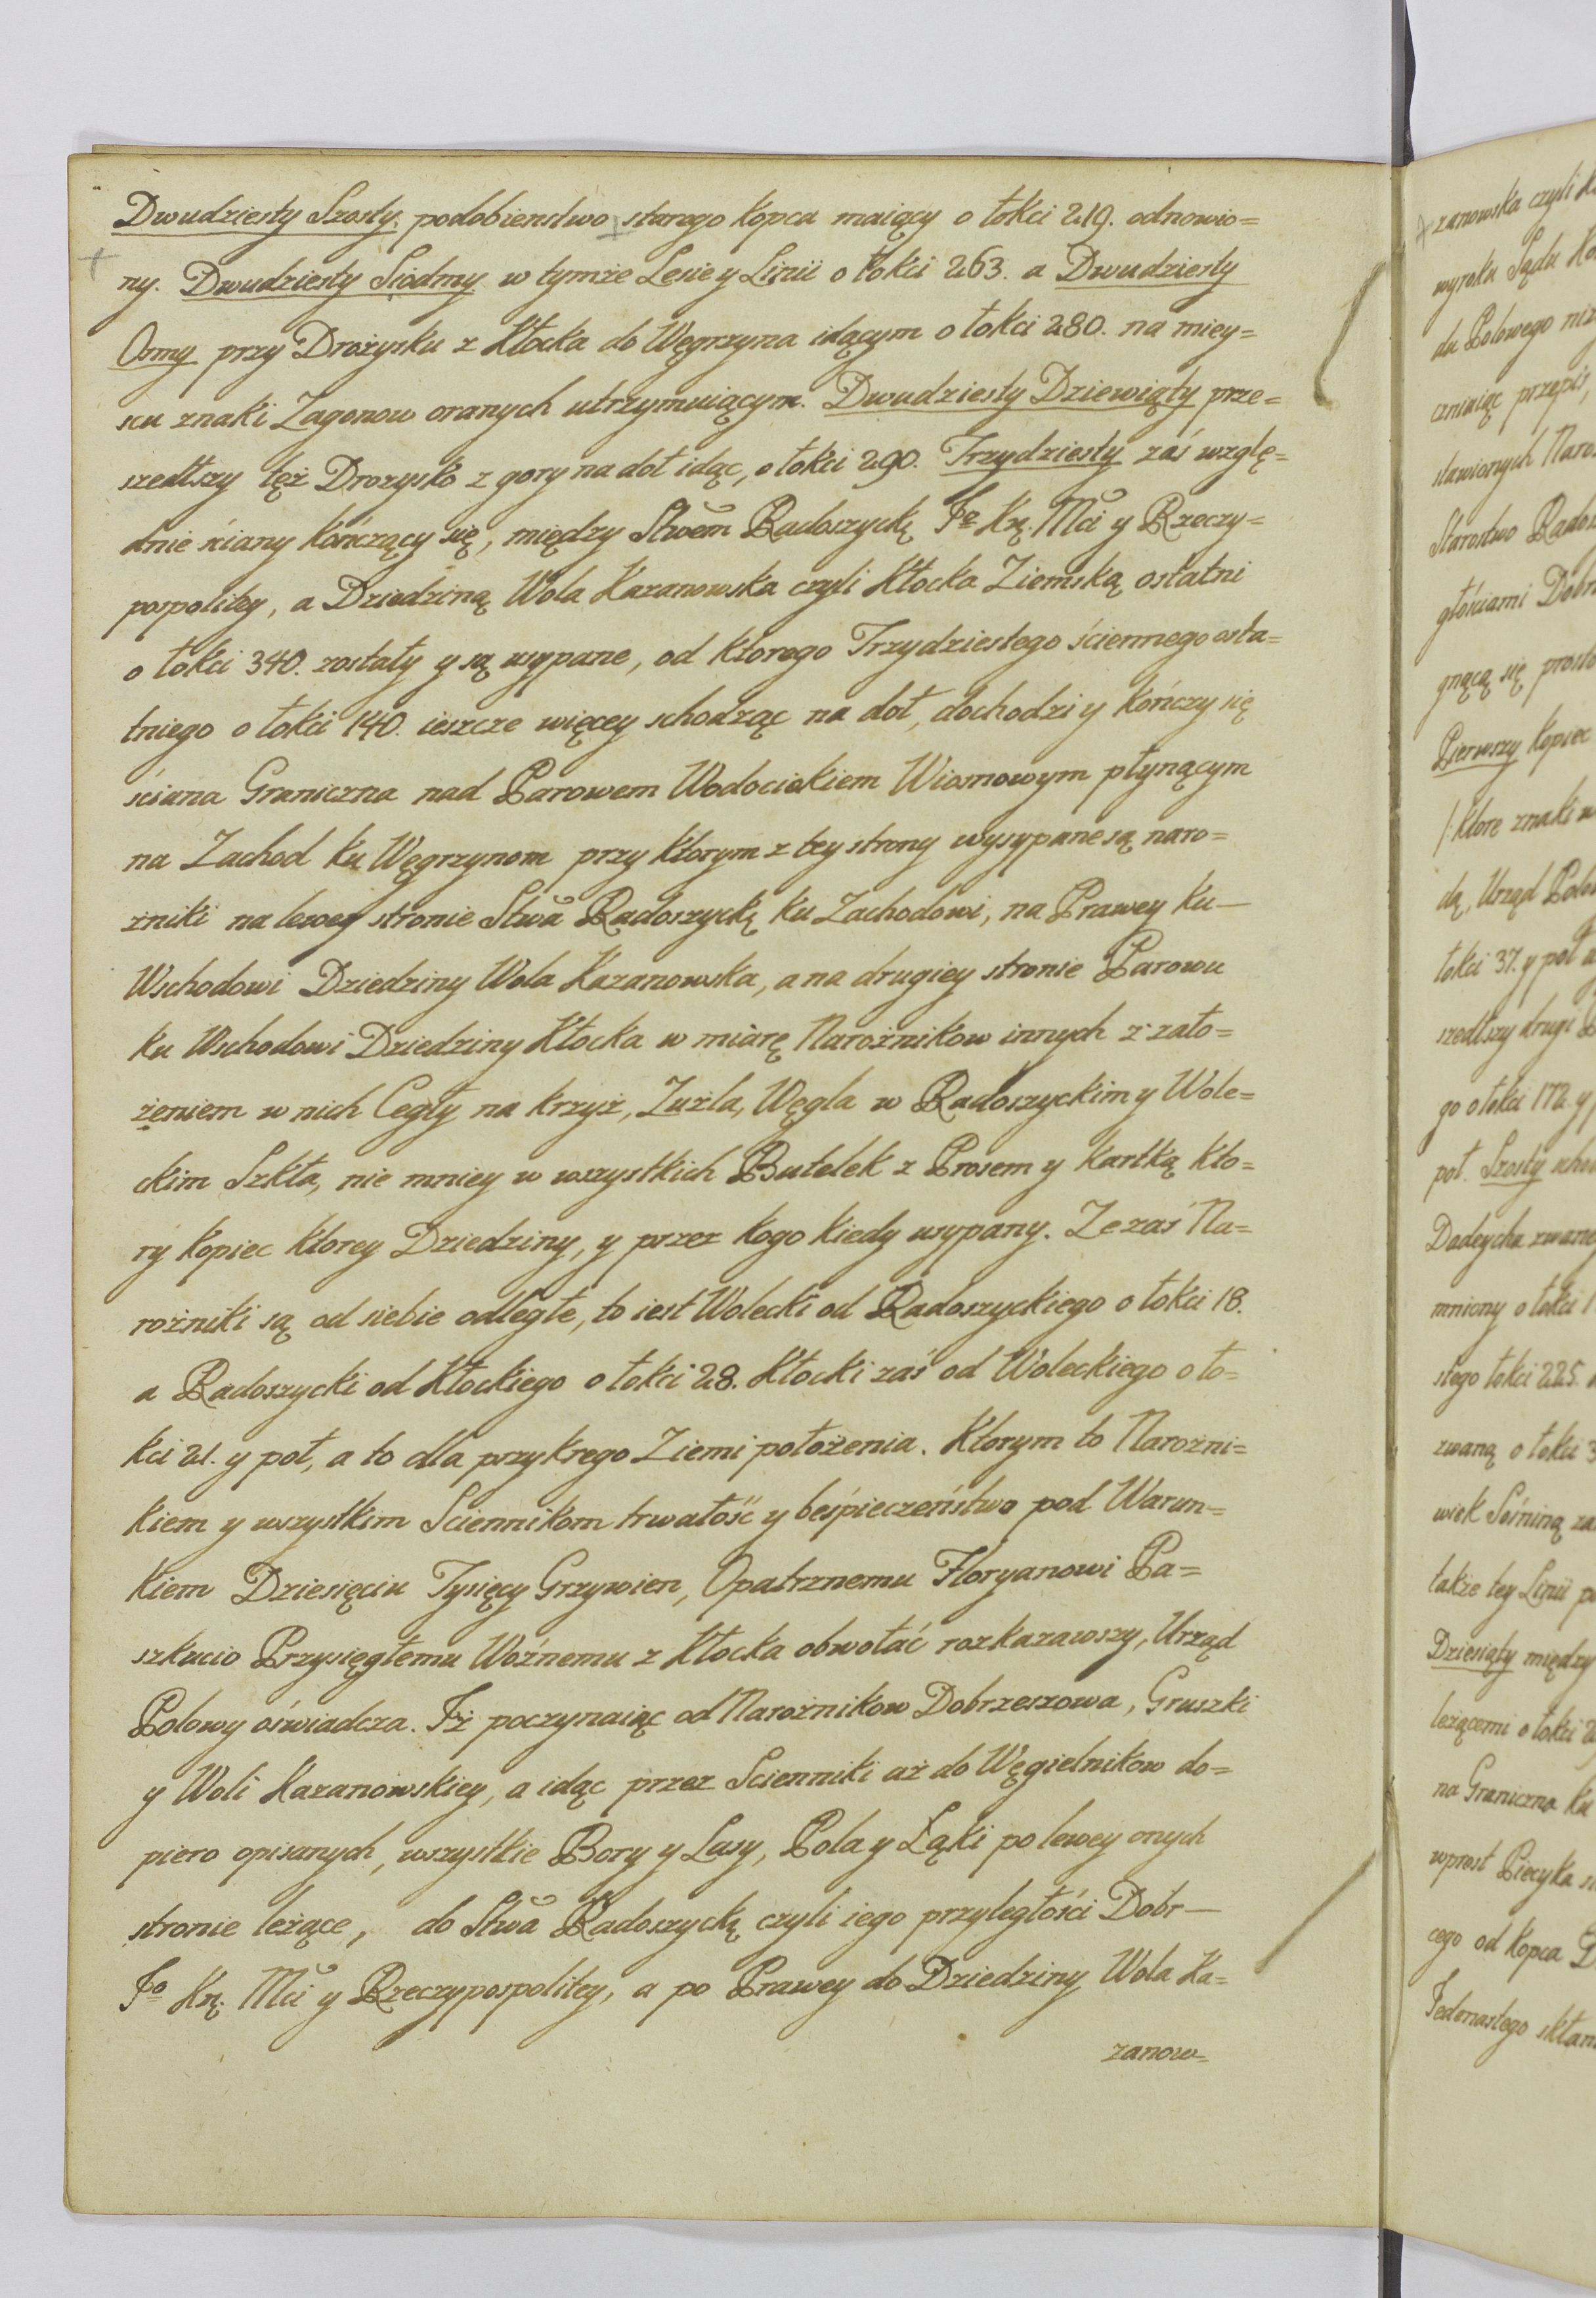 Dwudziesty Szosty podobienstwo starego kopca maiący o łokci 219. odnowio=
ny. Dwudziesty Siodmy w tymże Lesie y Linii o łokci 263. a Dwudziesty
Osmy przy Drożysku z Kłocka do Węgrzyna idącym o łokci 280. na miey=
scu znaki Zagonow oranych utrzymuiącym. Dwudziesty Dziewiąty prze=
szedłszy też Drozysko z gory na doł idąc, o łokci 290. Trzydziesty zaś wzglę=
dnie ściany kończący się, między Stwem Radoszyckę Jo Krę. Mci y Rzeczy=
pospolitey, a Dziedziną Wola Kazanowska czyli Kłocka Ziemską ostatni
o łokci 340. zostały y są usypane, od ktorego Trzydziestego ściennego osta=
tniego o łokci 140. ieszcze więcey schodząc na doł, dochodzi y kończy się
ściana Graniczna nad Parowem Wodociekiem Wiosnowym płynącym
na Zachod ku Węgrzynom przy ktorym z tey strony wysypane są naro=
żniki na lewey stronie Stwa Radoszyckę ku Zachodowi, na Prawey ku
Wschodowi Dziedziny Wola Kazanowska, a na drugiey stronie Parowu
ku Wschodowi Dziedziny Kłocka w miarę Narożnikow innych z zało=
żeniem w nich Cegły na krzyż, Zużla, Węgla w Radoszyckim y Wole=
ckim Szkła, nie mniey w wszystkich Butelek z Prosem y kartką kto=
ry kopiec ktorey Dziedziny, y przez kogo kiedy usypany. Ze zaś Na=
rożniki są od siebie odległe, to iest Wolecki od Radoszyckiego o łokci 18.
a Radoszycki od Kłockiego o łokci 28. Kłocki zaś od Woleckiego o ło=
kci 21. y poł, a to dla przykrego Ziemi położenia. Ktorym to Narożni=
kiem y wszystkim Sciennikom trwałość y beśpieczeństwo pod Warun=
kiem Dziesięciu Tysięcy Grzywien, Opatrznemu Floryanowi Pa=
szkucio Przysięgłemu Woźnemu z Kłocka obwołać rozkazawszy, Urząd
Polowy oświadcza. Iż poczynaiąc od Narożnikow Dobrzeszowa, Gruszki
y Woli Kazanowskiey, a idąc przez Scienniki aż do Węgielnikow do=
piero opisanych, wszystkie Bory y Lasy, Pola y Łąki po lewey onych
stronie leżące, do Stwa Radoszyckę czyli iego przyległości Dobr
Jo Krę. Mci y Rzeczypospolitey, a po Prawey do Dziedziny Wola Ka=
zanow=
zanowska czyli
wyroku Sądu
du Polowego
czniaiąc przepis,
stawionych
Starostwo
głościami
gnącą się
Pierwszy kopiec
/:ktore znaki
dą, Urząd
łokci 37. y poł
szedłszy drugi
go o łokci 172. y
poł. Szosty
Dadeycha
mniony o łokci
stego łokci 225.
zwaną o łokci
wiek Sośniną
także tey Linii
Dziesiąty między
leżącemi o łokci
na Graniczna ku
wprost Piecyka
cego od kopca
Jedenastego